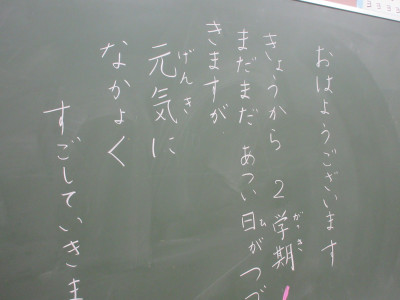 おはようございます
きょうから 2学期
がっき
まだまだ あつい日がつづ
ひ
きますが
元気に
げんき
なかよく
すごしていきま